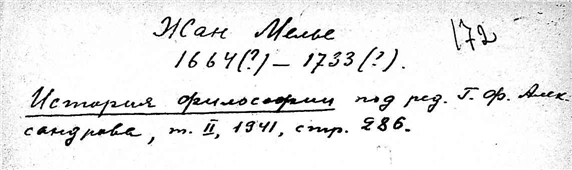 Жан Мелье
172
1664(?) — 1733(?).
История философии под ред. Г. Ф. Алек-
сандрова, т. II, 1941, стр. 286.